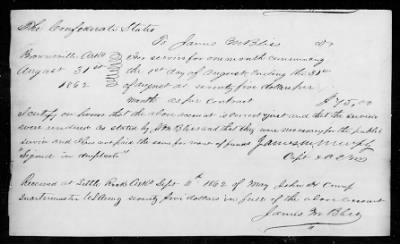 The Confederate States
To James M Bliss Dr
Brownsville Arks For services for one month commencing
August 31st the 1st day of August & ending the 31st
1862 of August at seventy five dollars per
month as per contract $75.00
I certify on honor that the above account is correct & just and that the services
were rendered as stated by, and that they were necessary for the public
service and I have not paid the same for want of funds James M Murphy
"Signed in duplicate" Capt & A
Received at Little Rock Arks Sept 2th 1862 of Maj John B Camp
Quartermaster CS Army seventy five dollars in full of the above account
James M Bliss